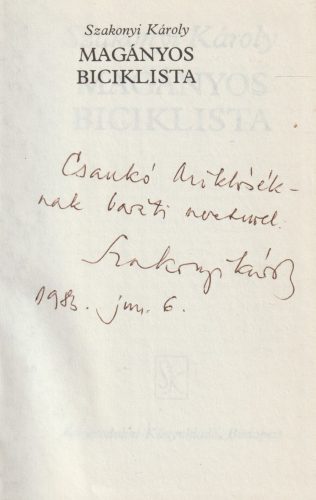 Szakonyi Károly
MAGÁNYOS
BICIKLISTA
Csankó Miklósék-
nak baráti szeretettel
Szakonyi Károly
1983. jun. 6.